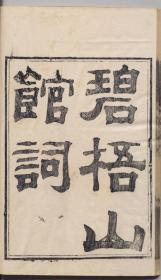 碧梧山
館詞